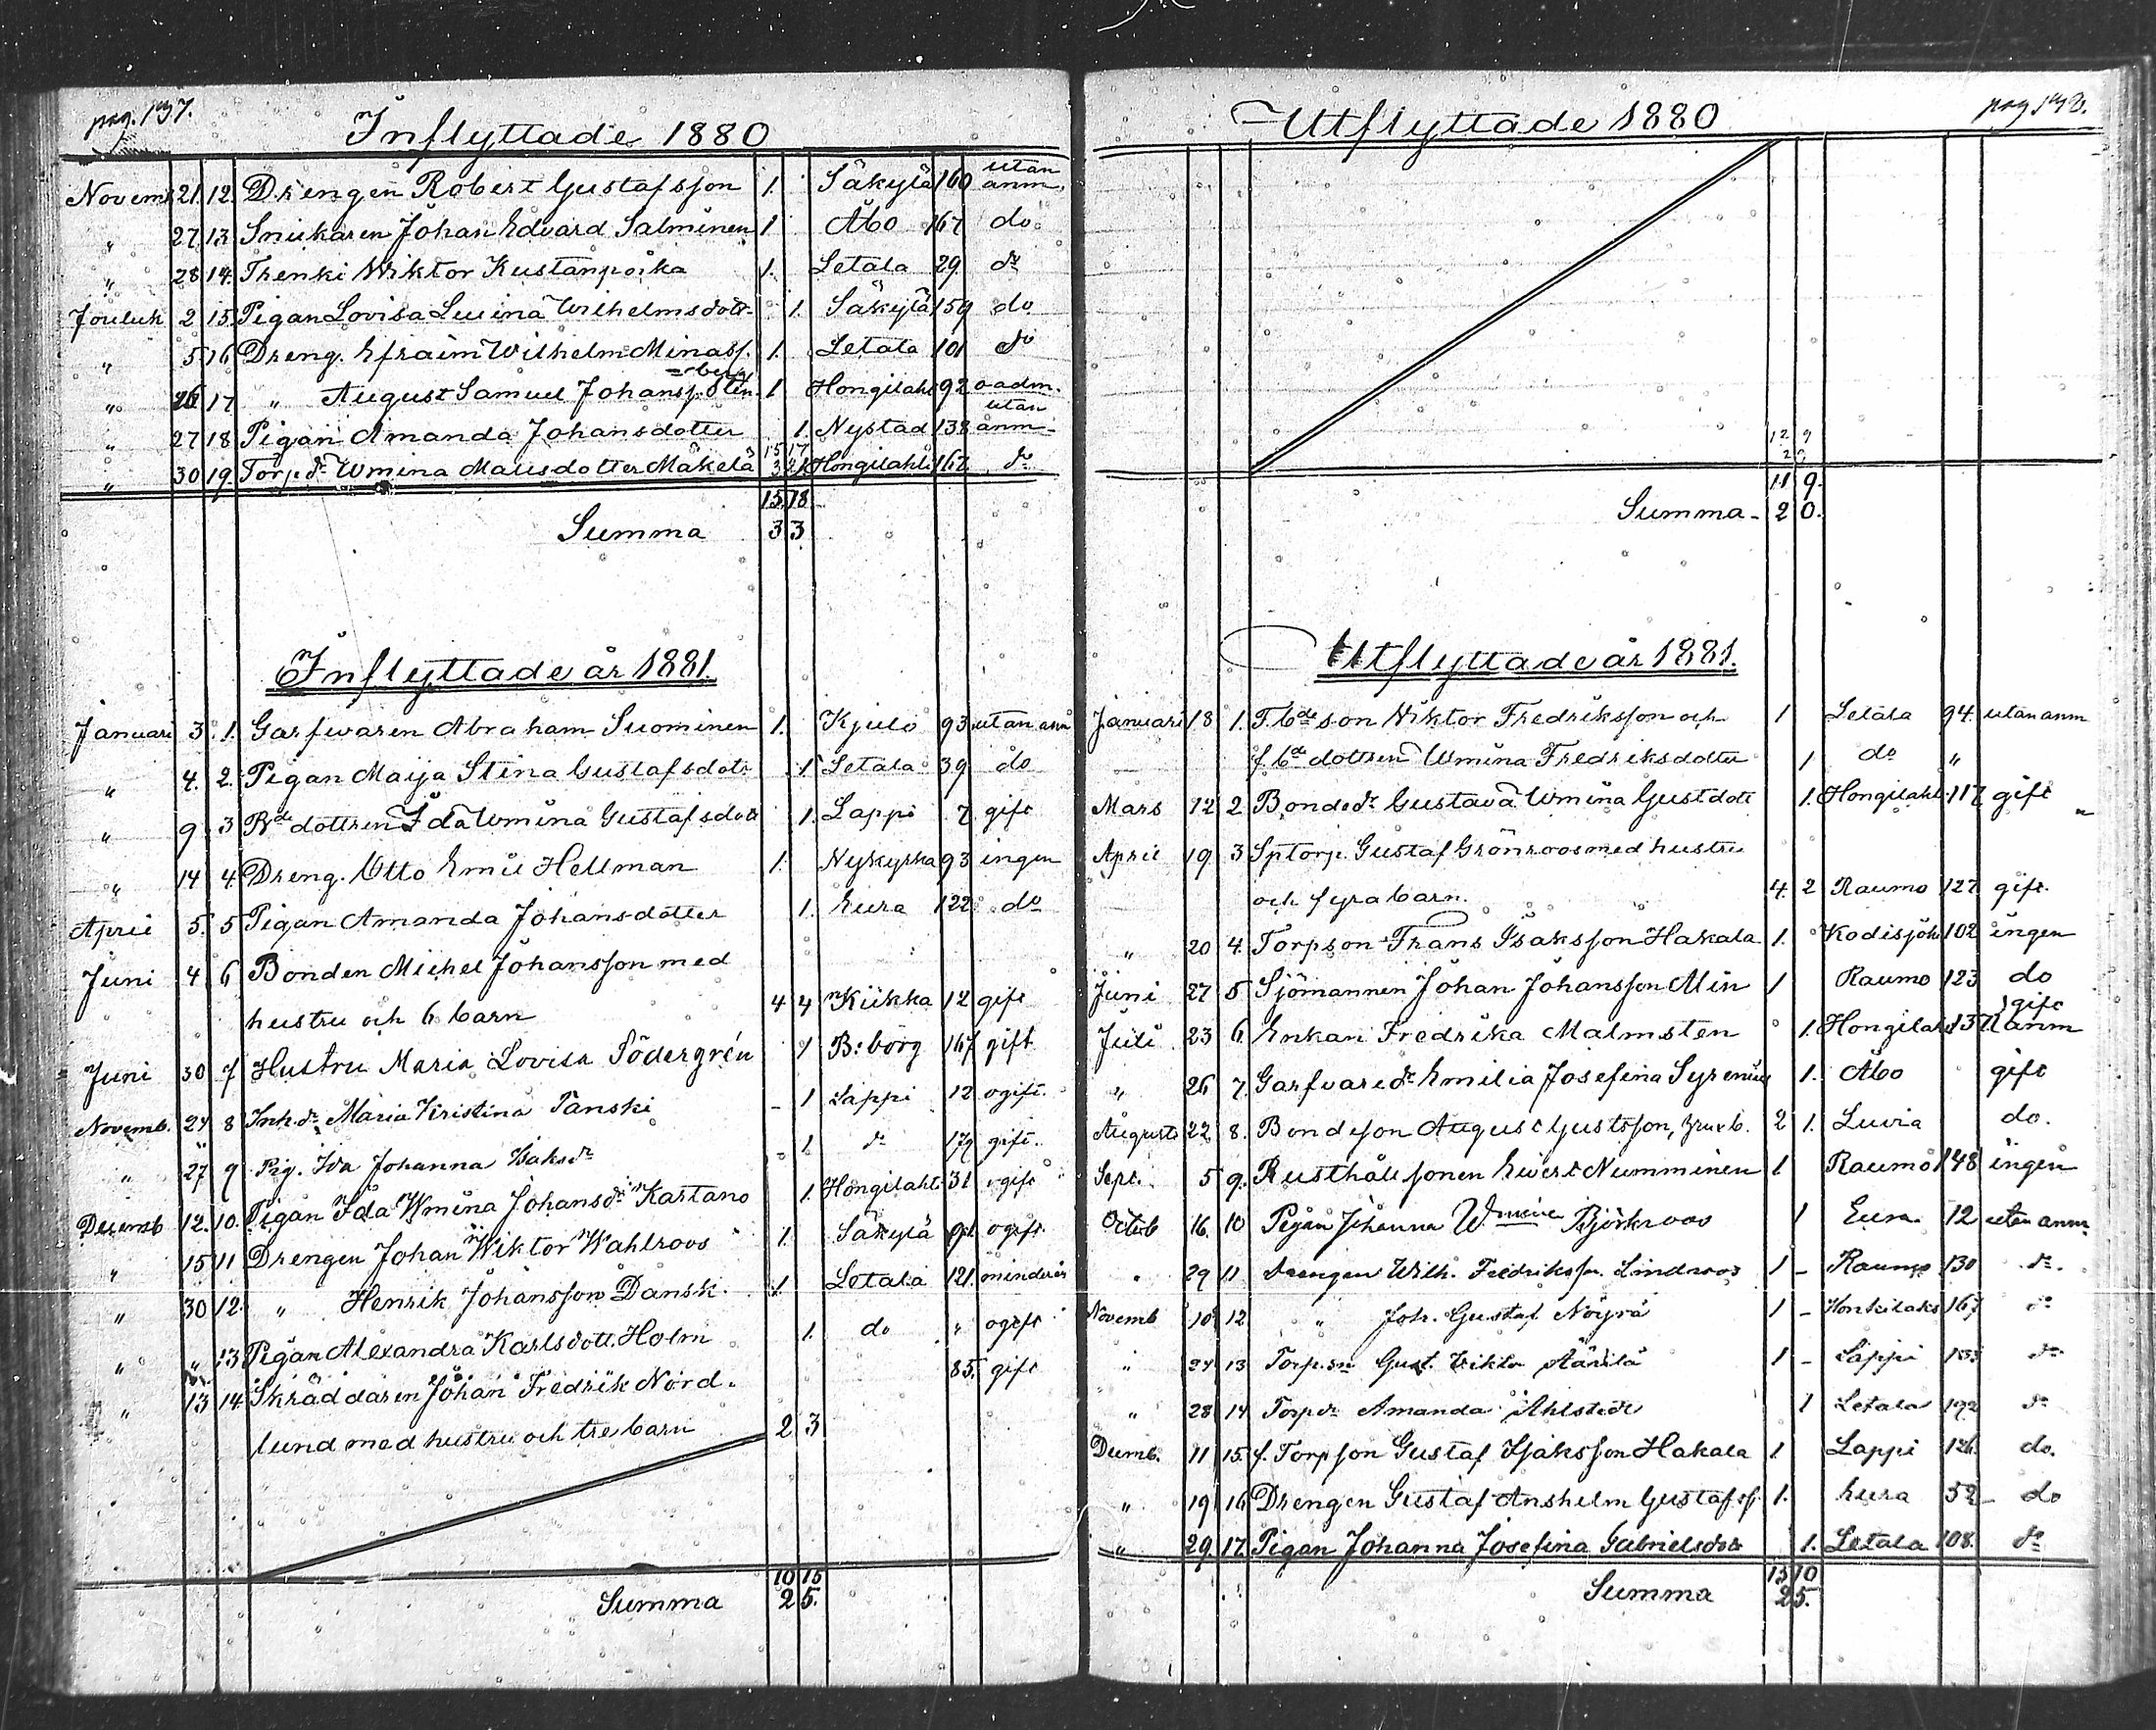 pag. 137.
Inflyttade 1880
Novemb 21. 12. Drengen Robert Gustafsson 1. Säkylä 160 utan anm.
" 27 13 Snickaren Johan Edvard Salminen 1 Åbo 167 do
" 28 14. Trenki Wiktor Kustanpoika 1. Letala 29 do
Jouluk 2 15. Pigan Lovisa Luuina Wilhelmsdott. 1. Säkylä 159 do
" 5 16 Dreng. Efraim Wilhelm Minass. 1. Letala 101 do
" 26 17 " August Samuel Johanss. Sten=berg 1 Hongilaht 92 o adm.
" 27 18 Pigan Amanda Johansdotter 1. Nystad 138 utan anm.
" 30 19. Torp.dr Wmina Matsdotter Mäkelä 1 Hongilahti 162 do
15 18
Summa 33
Inflyttade år 1881.
Januari 3. 1. Garfvaren Abraham Suominen 1. Kjulo 93 utan anm
" 4. 2. Pigan Maija Stina Gustafsdott 1 Letala 39 do
" 9 3 Bde dottren Ida Wmina Gustafsdott 1. Lappi 7 gift
" 14 4. Dreng. Otto Emil Hellman 1. Nykyrka 93 ingen
April 5. 5 Pigan Amanda Johansdotter 1. Eura 122 do
Juni 4 6 Bonden Michel Johansson med
hustru och 6 barn 4 4 Kiikka 12 gift
Juni 30 7 Hustru Maria Lovisa Södergrén 1 B:borg 167 gift
Novemb. 24 8 Inh.dr Maria Kristina Tanski - 1 Lappi 12 ogift.
" 27 9 Pig. Ida Johanna Isaksdr - 1 do 179 gift.
Decemb 12. 10. Pigan Ida Wmina Johansdr Kartano 1. Hongilaht. 31 ogift
" 15 11 Drengen Johan Wiktor Wahlroos 1. Säkylä 91 ogift
" 30 12. " Henrik Johansson Dansk 1 Letala 121. minderår
" " 13 Pigan Alexandra Karlsdott. Holm 1. do " ogift
" 13 14 Skräddaren Johan Fredrik Nord- 85. gift
lund med hustru och tre barn 2 3
10 15
Summa 25.
pag 138.
Utflyttade 1880
11 9.
Summa 20.
Utflyttade år 1881.
Januari 18 1. T.bde son Wiktor Fredriksson och 1 Letala 94. utan anm
f bde dottren Wmina Fredriksdotter 1 do "
Mars 12 2 Bondedr Gustava Wmina Gustdott 1. Hongilaht. 117 gift
April 19 3 Sptorp. Gustaf Grönroos med hustru
och fyra barn. 4. 2 Raumo 127 gift.
" 20 4. Torpson Frans Isaksson Hakala 1. Kodisjoki 102 ingen
Juni 27 5 Sjömannen Johan Johansson Alin 1 Raumo 123 do
Juli 23 6. Enkan Fredrika Malmsten 1. Hongilaht 137 gift anm
" 26 7. Garfvaredr Emilia Josefina Syrenius 1. Åbo gift
Augusti 22 8. Bondeson August Gustsson, 2 1. Luvia do.
Sept. 5 9. Rusthålssonen Evert Numminen 1 Raumo 148 ingen
Octob 16. 10 Pigan Johanna Wmina Björkroos 1 Eura 12 utan anm.
" 29 11 Drengen Wilh. Fredrikssn Lindroos 1 - Raumo 130 do.
Novemb 10 12 " Joh. Gustaf Nöyrä 1 - Honkilaks 167 do
" 24 13 Torp.sn Gust. Viktor Äärilä 1 - Lappi 133 do
" 28 14 Torpdr Amanda Ahlstedt 1 Letala 192 do
Decmb. 11 15. f. Torpson Gustaf Isaksson Hakala 1. Lappi 126. do.
" 19 16 Drengen Gustaf Anshelm Gustafss. 1. Eura 52 - do
" 29. 17. Pigan Johanna Josefina Gabrielsdott 1. Letala 108. do
15 10
Summa 25.